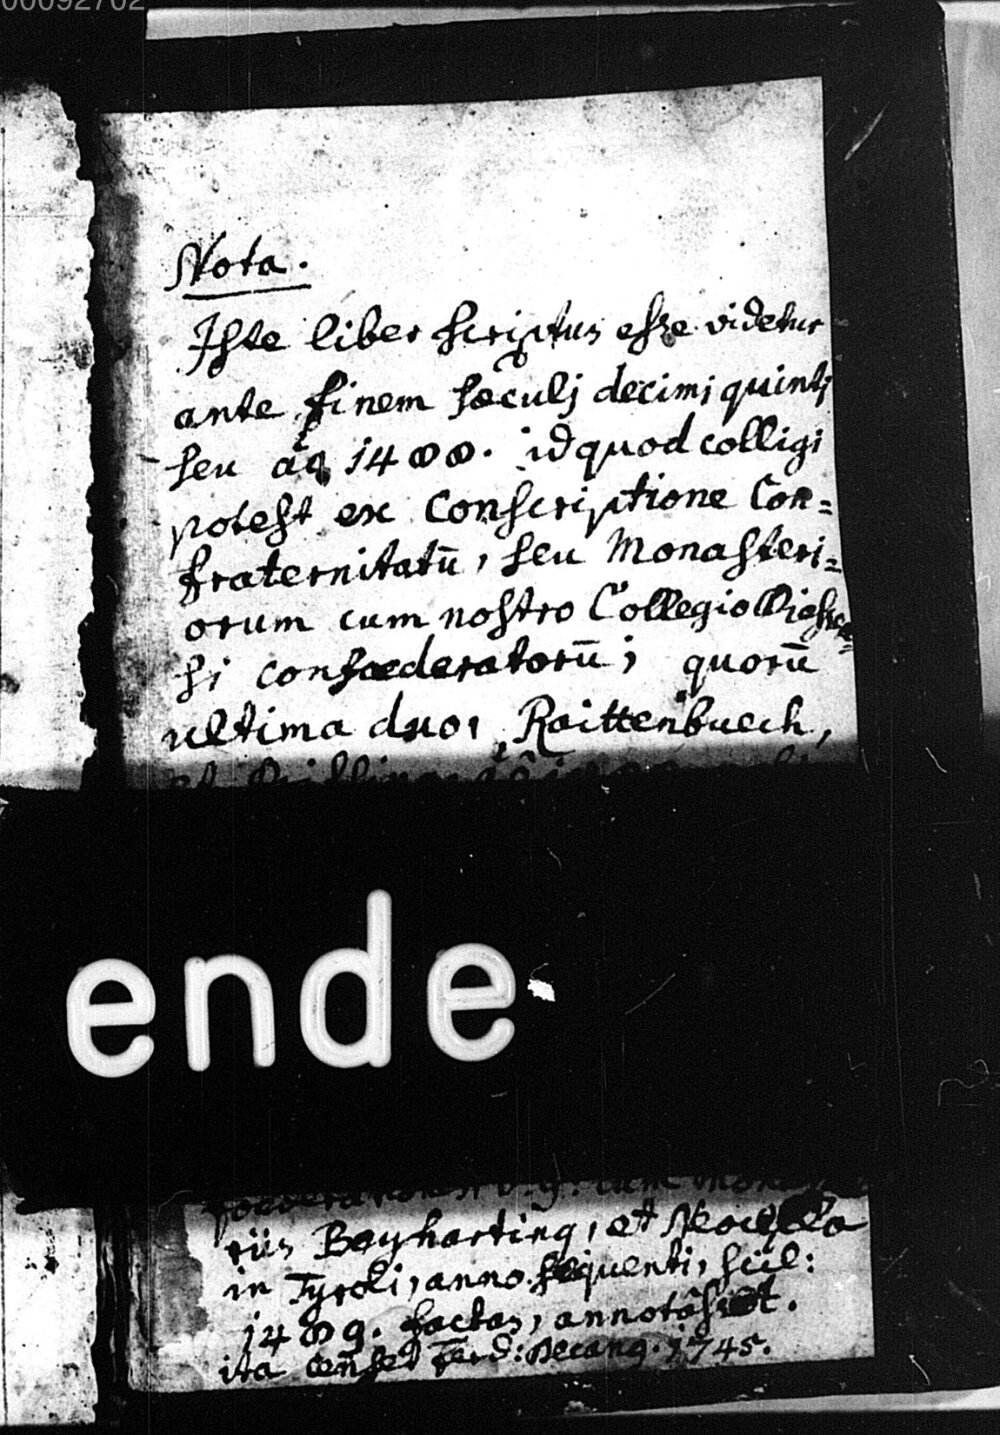 00092702
Nota.
Iste liber scriptus esse videtur
ante finem sæculj decimj quintj
seu aō 1488. id quod colligi
potest ex Conscriptione Con=
fraternitatū, seu Monasteri=
orum cum nostro Collegio Diess=
si confœderatorū; quorū
ultima duo, Raittenbuech,
ende
riis Beyharting, et
in Tyroli, anno sequenti, scil:
1489. factas, annotâsset.
ita censet Ferd: Decang. 1745.